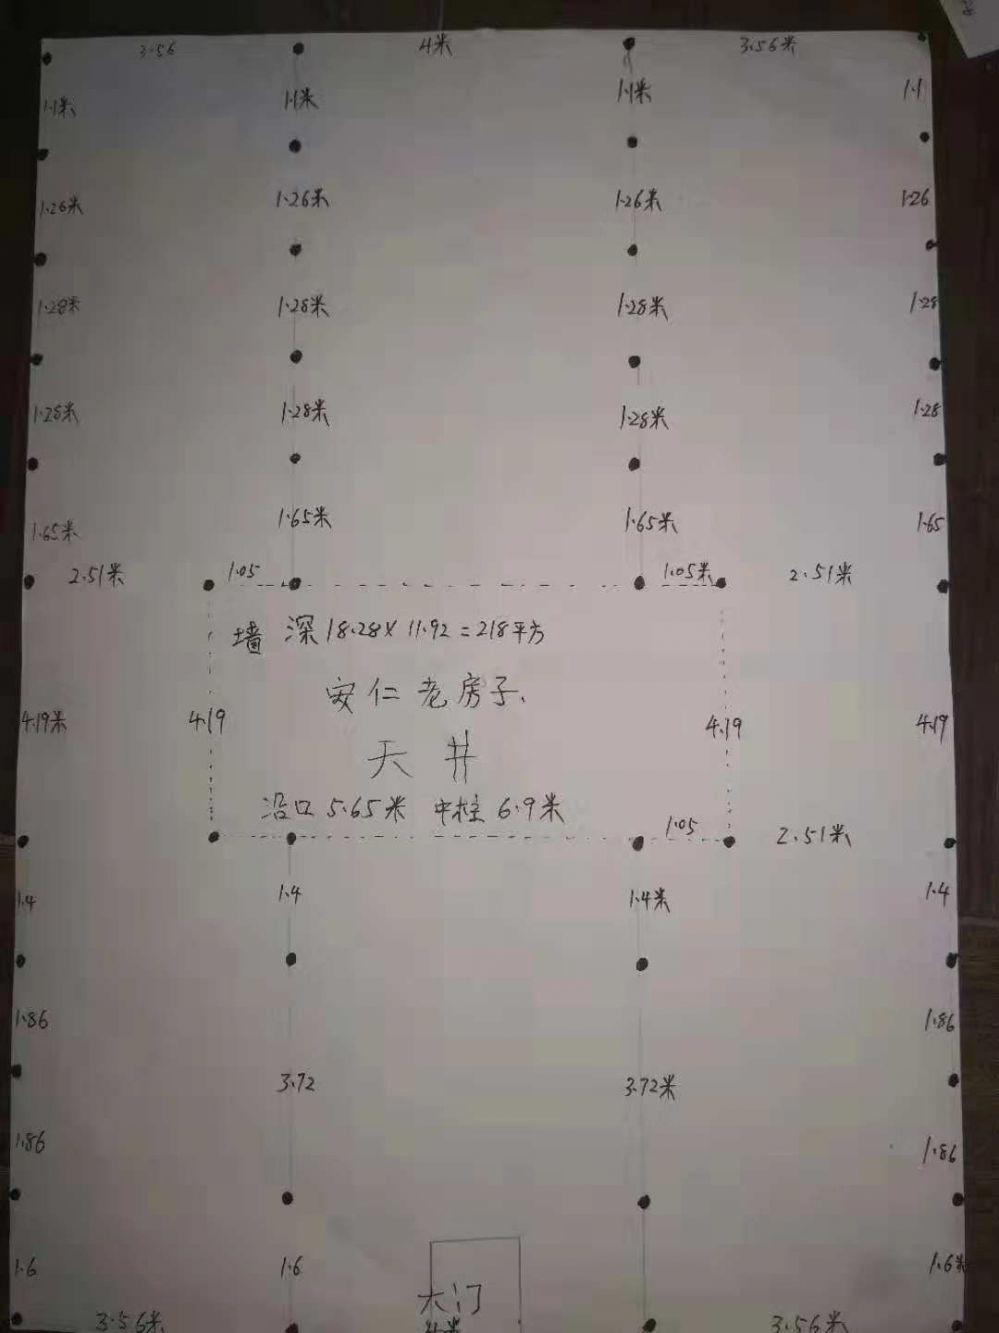 3.56 4米 3.56米
1.1米 1.1米 1.1米 1.1
1.26米 1.26米 1.26米 1.26
1.28米 1.28米 1.28米 1.28
1.28米 1.28米 1.28米 1.28
1.65米 1.65米 1.65米 1.65
2.51米 1.05 1.05米 2.51米
墙 深18.28×11.92=218平方
安仁老房子、
4.19米 4.19 4.19 4.19
天井
沿口5.65米 中柱6.9米
1.05 2.51米
1.4 1.4 1.4米 1.4
1.86 1.86
3.72 3.72米
1.86 1.86
1.6 1.6 1.6米
大门
3.56米 4米 3.56米